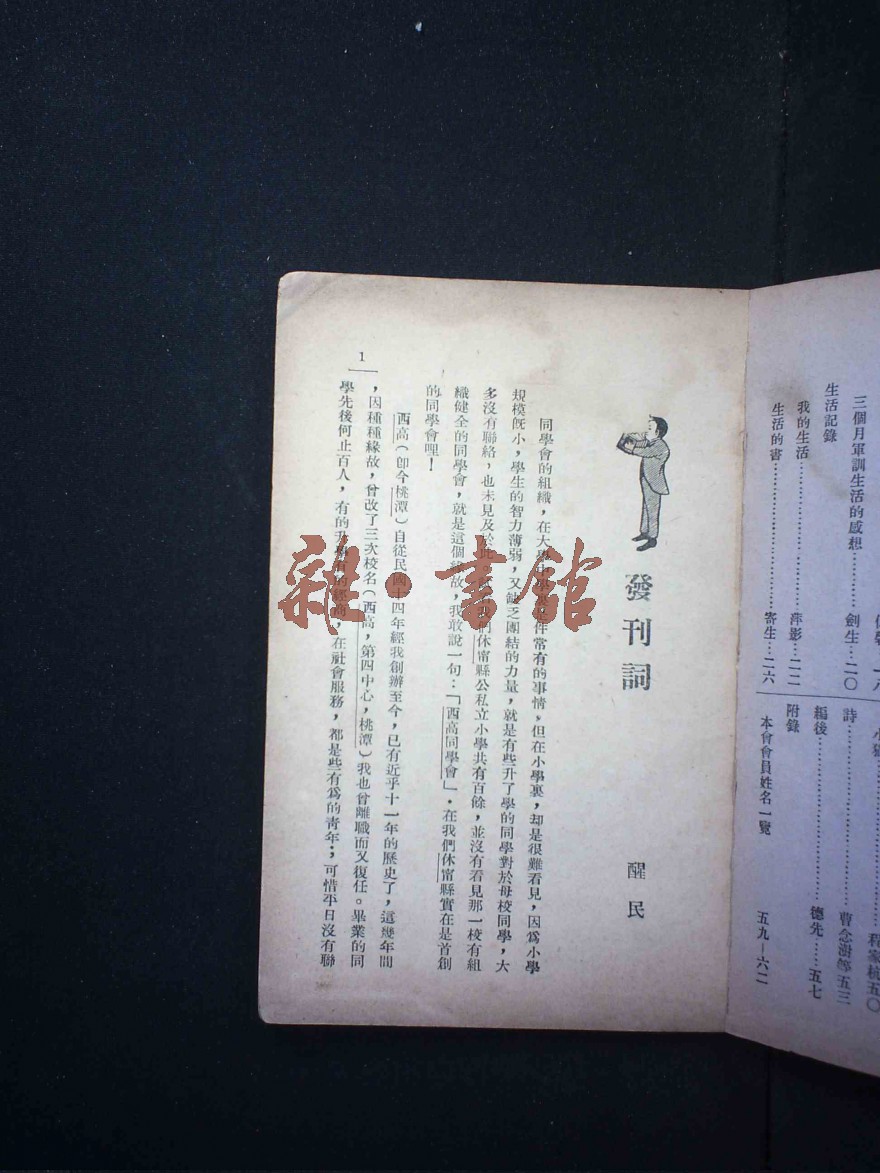 三個月軍訓生活的感想…………劍生…二〇
生活記錄
我的生活…………………………萍影…二二
生活的書…………………………寄生…二六
程家梳五〇
詩…………………………曹念澍等五三
編後…………………………德先…五七
附錄
本會會員姓名一覽　五九—六二
發刊詞
醒民
同學會的組織，在大學中學是件常有的事情，但在小學裏，却是很難看見，因爲小學
規模旣小，學生的智力薄弱，又缺乏團結的力量，就是有些升了學的同學對於母校同學，大
多沒有聯絡，也未見及於此。我們休甯縣公私立小學共有百餘，並沒有看見那一校有組
織健全的同學會，就是這個緣故，我敢說一句：「西高同學會」，在我們休甯縣實在是首創
的同學會哩！
西高（卽今桃潭）自從民國十四年經我創辦至今，已有近乎十一年的歷史了，這幾年間
，因種種緣故，曾改了三次校名（西高，第四中心，桃潭）我也曾離職而又復任。畢業的同
學先後何止百人，有的升學有的經商，在社會服務，都是些有爲的靑年；可惜平日沒有聯
1
雜·書館